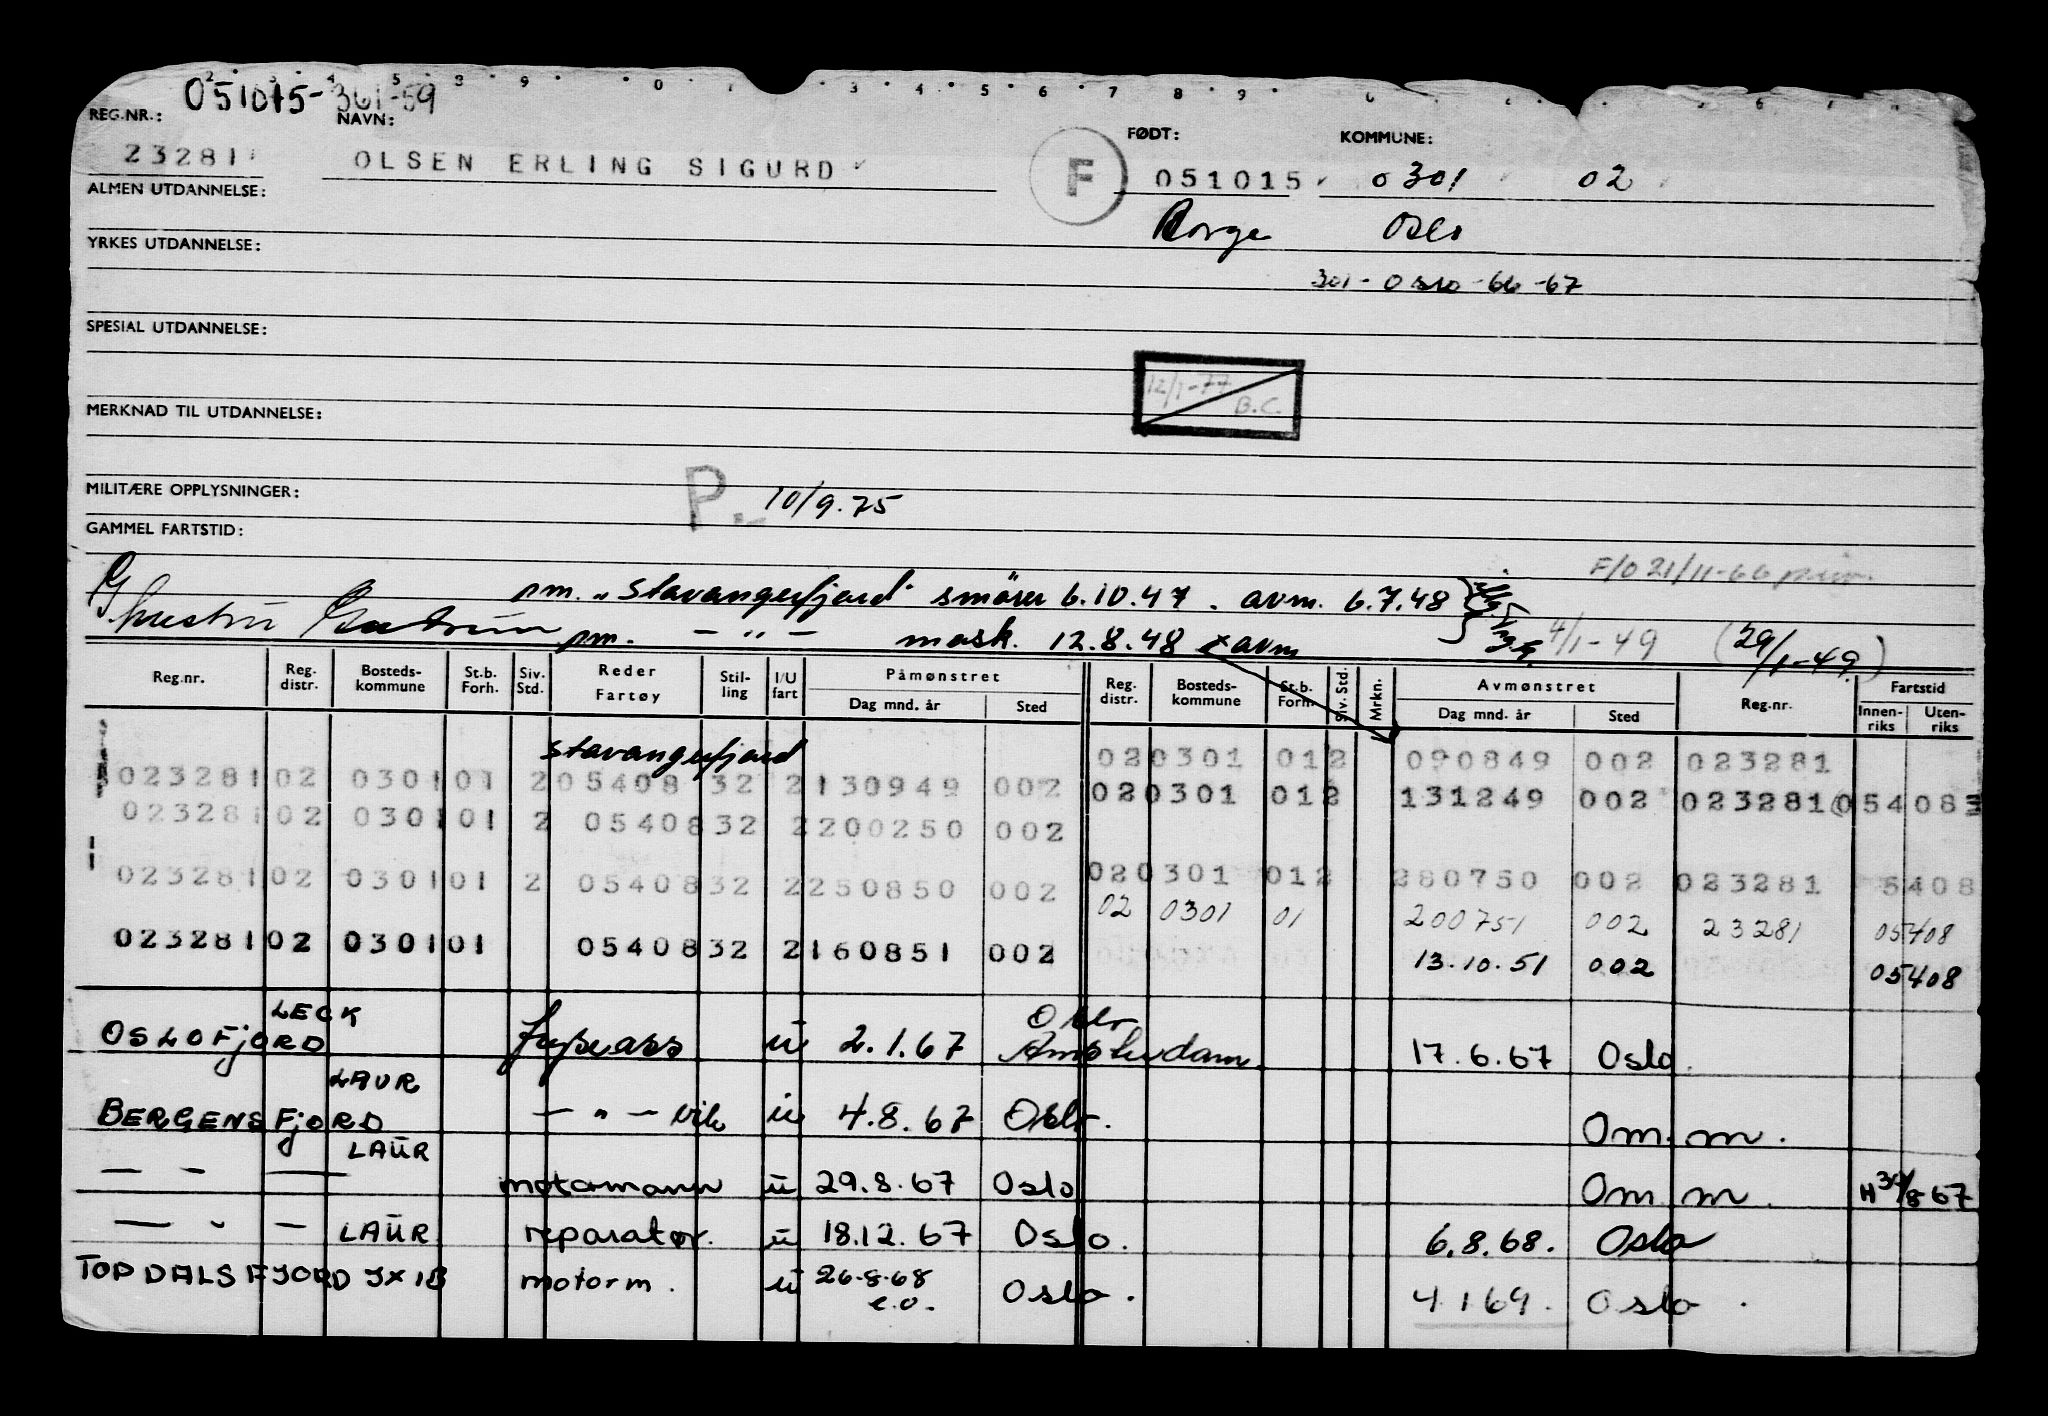 051015-361-59
REG.NR.: NAVN: FØDT: KOMMUNE:
23281 OLSEN ERLING SIGURD F 051015 0301 02
ALMEN UTDANNELSE:
Borge Oslo
YRKES UTDANNELSE:
301-Oslo-66-67
SPESIAL UTDANNELSE:
12/1-77
B.C.
MERKNAD TIL UTDANNELSE:
MILITÆRE OPPLYSNINGER:
P. 10/9.75
GAMMEL FARTSTID:
F/O 21/11-66
pm. "Stavangerfjord" smører 6.10.47. avm. 6.7.48
pm. - " - mask. 12.8.48 x avm 4/1-49 (29/1-49)
Reg.nr. Reg. distr. Bosteds-kommune St.b. Forh. Siv. Std. Reder Fartøy Stil-ling I/U fart Påmønstret Dag mnd. år Sted Reg. distr. Bosteds-kommune St.b. Forh. Siv. Std. Mrkn. Avmønstret Dag mnd. år Sted Reg.nr. Fartstid Innen-riks Uten-riks
Stavangerfjord 02 0301 01 2 090849 002 023281
023281 02 0301 01 2 05408 32 2 130949 002 02 0301 01 2 131249 002 023281 05408
023281 02 0301 01 2 05408 32 2 200250 002
023281 02 0301 01 2 05408 32 2 250850 002 02 0301 01 2 280750 002 023281 5408
02 0301 01 200751 002 23281 05408
023281 02 0301 01 05408 32 2 160851 002 13.10.51 002 05408
LECK Oslo
OSLOFJORD u 2.1.67 Amsterdam 17.6.67 Oslo.
LAUR
BERGENSFJORD - " - u 4.8.67 Oslo. Om. m.
LAUR
- " - motormann u 29.8.67 Oslo Om. m. H 30/8 67
- " - LAUR reparatør. u 18.12.67 Oslo. 6.8.68. Oslo
TOPDALSFJORD JXIB motorm. u 26.8.68 e.o. Oslo. 4.1.69. Oslo.